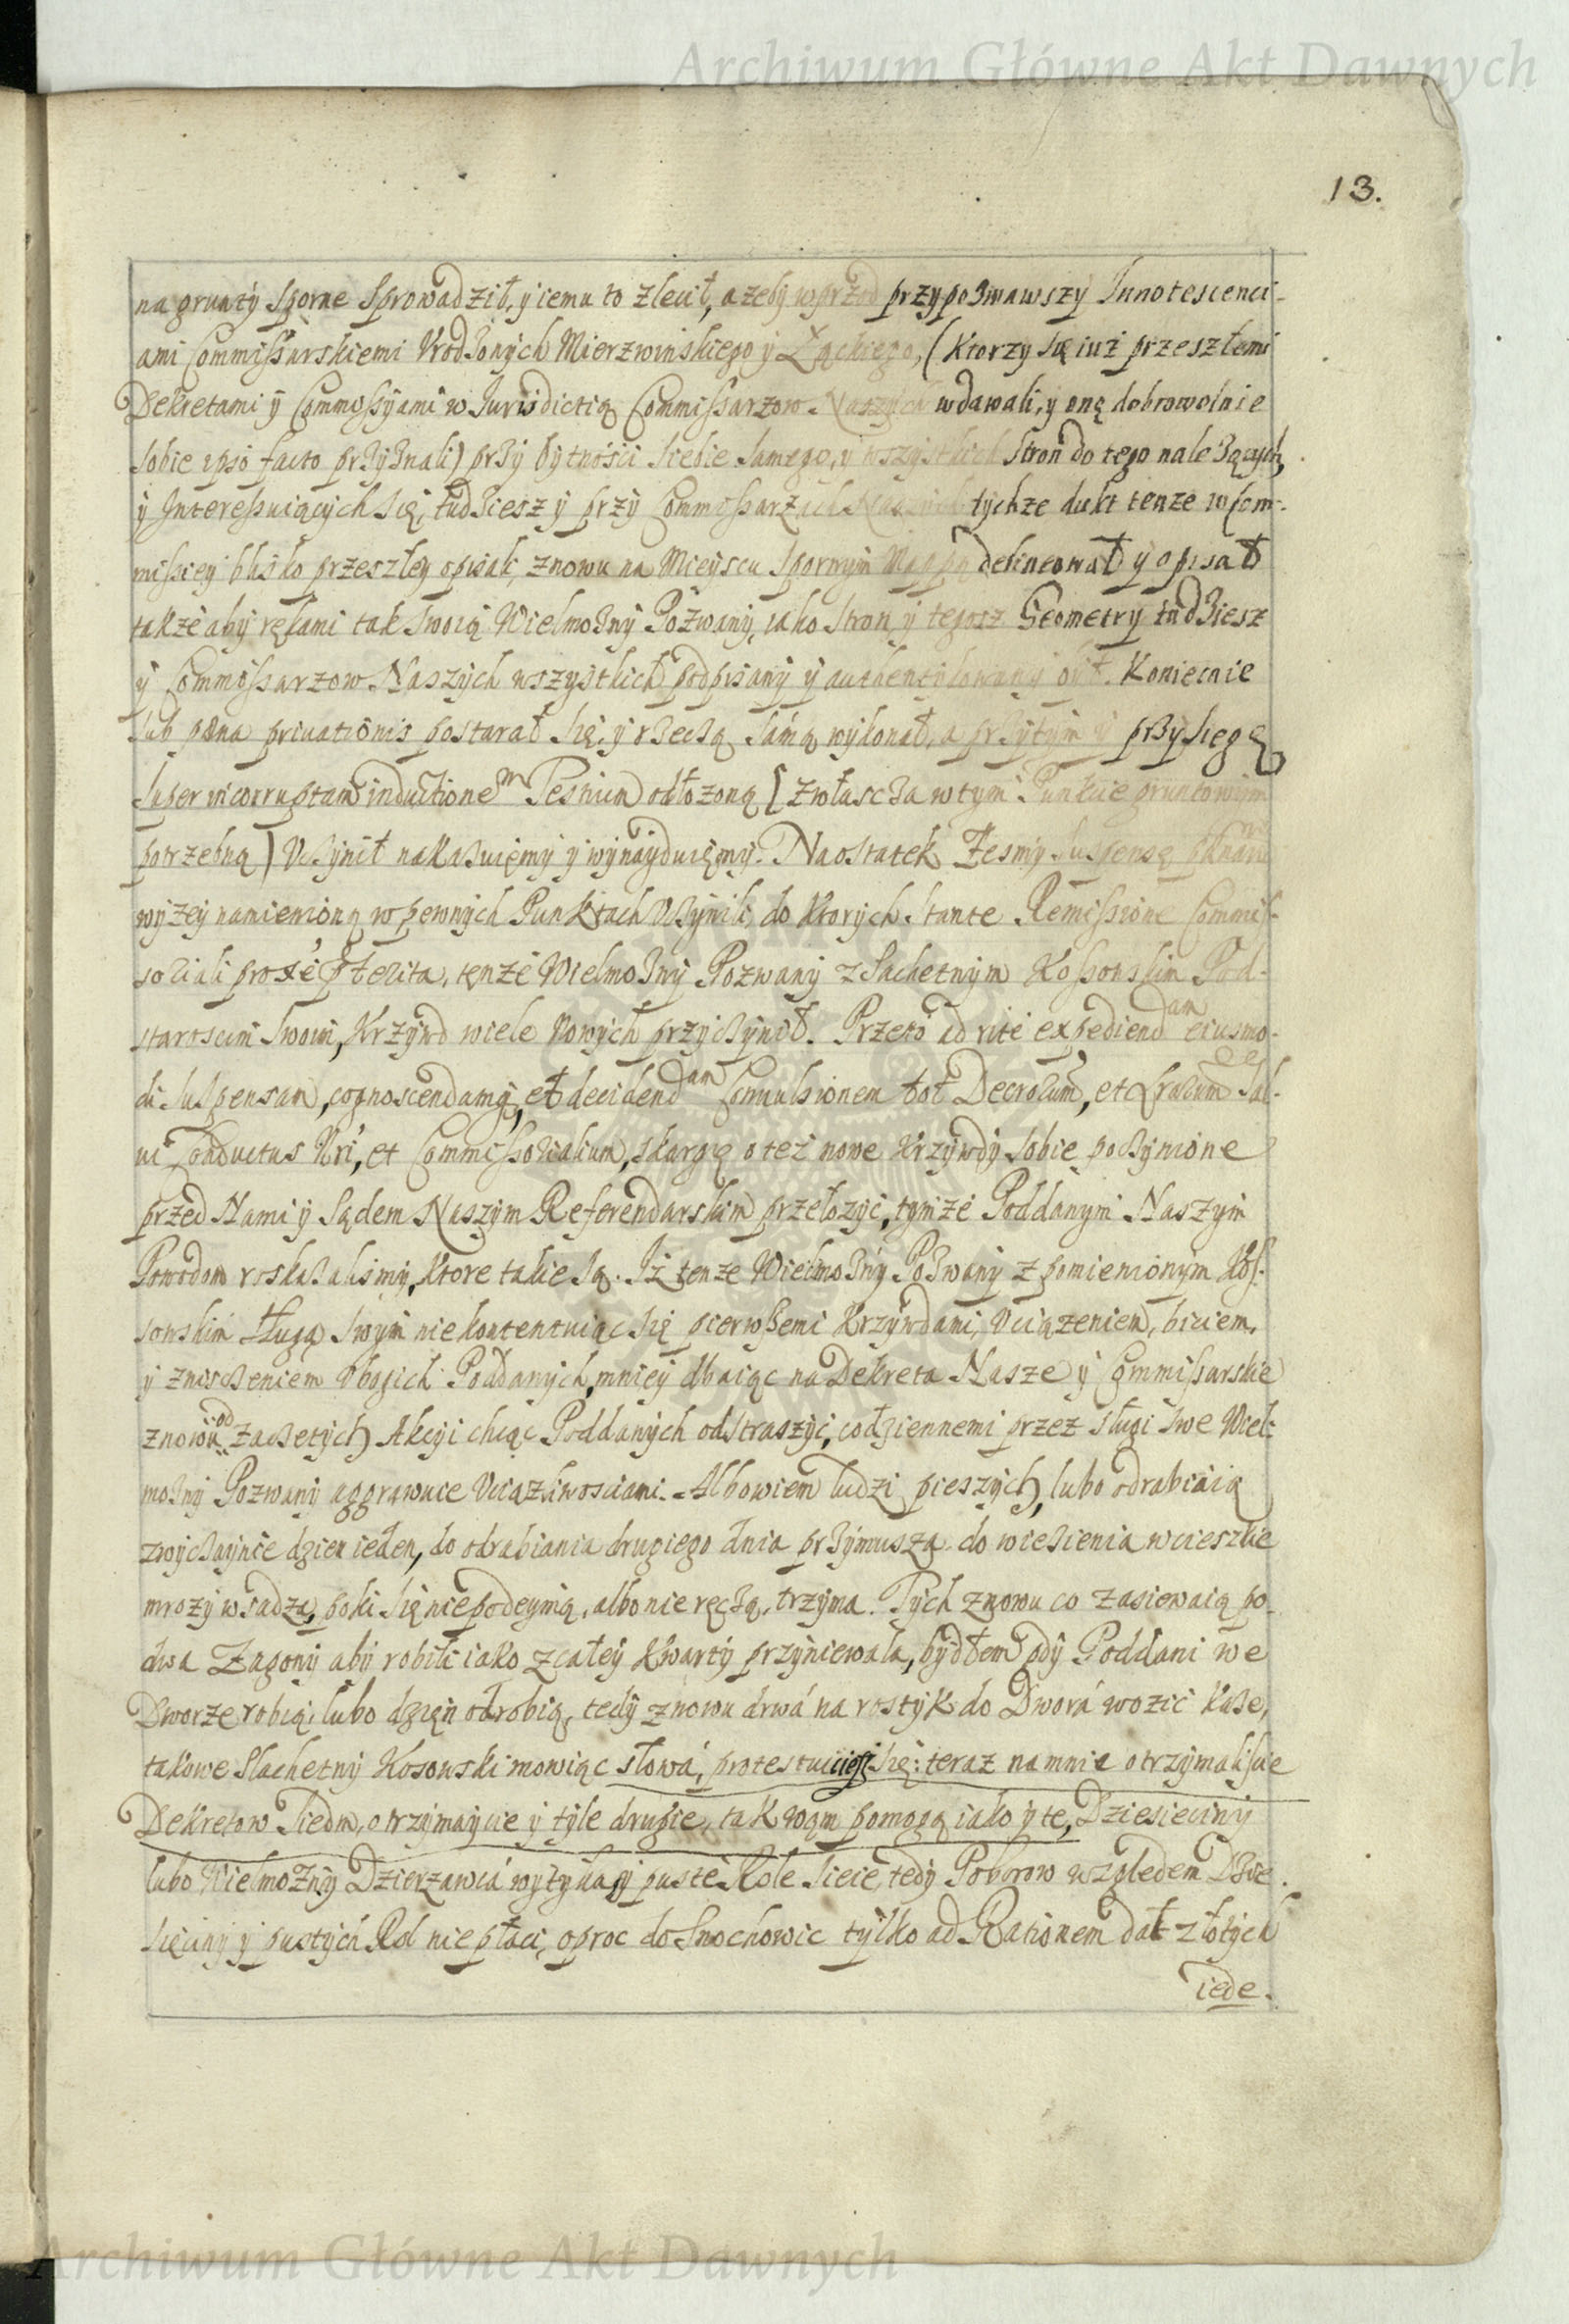 Archiwum Główne Akt Dawnych
13.
na grunty sporne sprowadził, y iemu to zlecił, azeby wprzod przypozwawszy Innotescenci-
ami Commissarskiemi Vrodzonych Mierzwinskiego y Ząckiego, (ktorzy się iuż przeszłemi
Dekretami y Commissyami w Jurisdictią Commissarzow Naszych wdawali, y onę dobrowolnie
sobie ipso facto przyznali) przy bytności siebie samego, y wszystkich stron do tego należących,
y Interessuiących się, tudziesz y przy Commissarzach Naszych tychze dukt tenze w Com-
missiey blisko przeszłey opisali, znowu na Mieyscu spornym Mappą delineował y opisał
także aby rękami tak swoią Wielmożny Pozwany, iako stron y tegosz Geometry tudziesz
y Commissarzow Naszych wszystkich podpisany y authentikowany był. Koniecnie
sub pæna priuationis postarał się, y rzeczą samą wykonał, a przytym y przysięgę
super incorruptam inductionem Testium odłożoną (zwłascza w tym Punkcie gruntowym
potrzebną) Vczynił nakazuięmy y wynayduięmy. Naostatek Żesmy suspensę
wyżey namienioną w pewnych Punktach Vczynili, do ktorych stante Remissione Commis-
soriali prosże tenże Wielmożny Pozwany z Slachetnym Kossowskim Pod-
staroscim swoim, Krzywd wiele nowych przyczynił. Przeto ad rite expediendam eiusmo-
di suspensam, cognoscendamq, et decidendam Conuulsionem tot Decretorum, et Sal-
ui Conductus Nri, et Commissorialium, skargę o też nowe Krzywdy sobie poczynione
przed Nami y Sądem Naszym Referendarskim przełożyć, tymże Poddanym Naszym
Powodom roskazalismy, ktore takie są. Iż tenze Wielmożny Pozwany z pomienionym Kos-
sowskim sługą swym niekontentuiąc się pierwszemi Krzywdami, Vciążeniem, biciem,
y zniszczeniem Vbogich Poddanych, mniey dbaiąc na Dekreta Nasze y Commissarskie
znowu od zaczetych Akcyi chcąc Poddanych odstraszyć, codziennemi przez sługi swe Wiel-
możny Pozwany aggrawuie Vciązliwosciami. Albowiem ludzi pieszych, lubo odrabiaią
zwyczaynie dzien ieden, do odrabiania drugiego dnia przymusza, do wiezienia w cieszkie
mrozy wsadza, poki się nie podeymą, albo nie ręczą, trzyma. Tych znowu co zasiewaią po
dwa Zagony aby robili iako z całey kwarty przyniewala, bydłem gdy Poddani we
Dworze robią, lubo dzien odrobią, tedy znowu drwa na rostyk do Dwora wozić każe,
takowe Slachetny Kosowski mowiąc słowa, protestuiciesz się: teraz na mnie otrzymaliscie
Dekretow Siedm, otrzymaycie y tyle drugie, tak wam pomogą iako y te, Dziesieciny
lubo Wielmożny Dzierzawca wytyka y puste Role sieie, tedy Poborow względem Dzie-
sięciny y pustych Rol nie płaci, oproc do Snochowic tylko ad Rationem dał złotych
iede-
Archiwum Główne Akt Dawnych